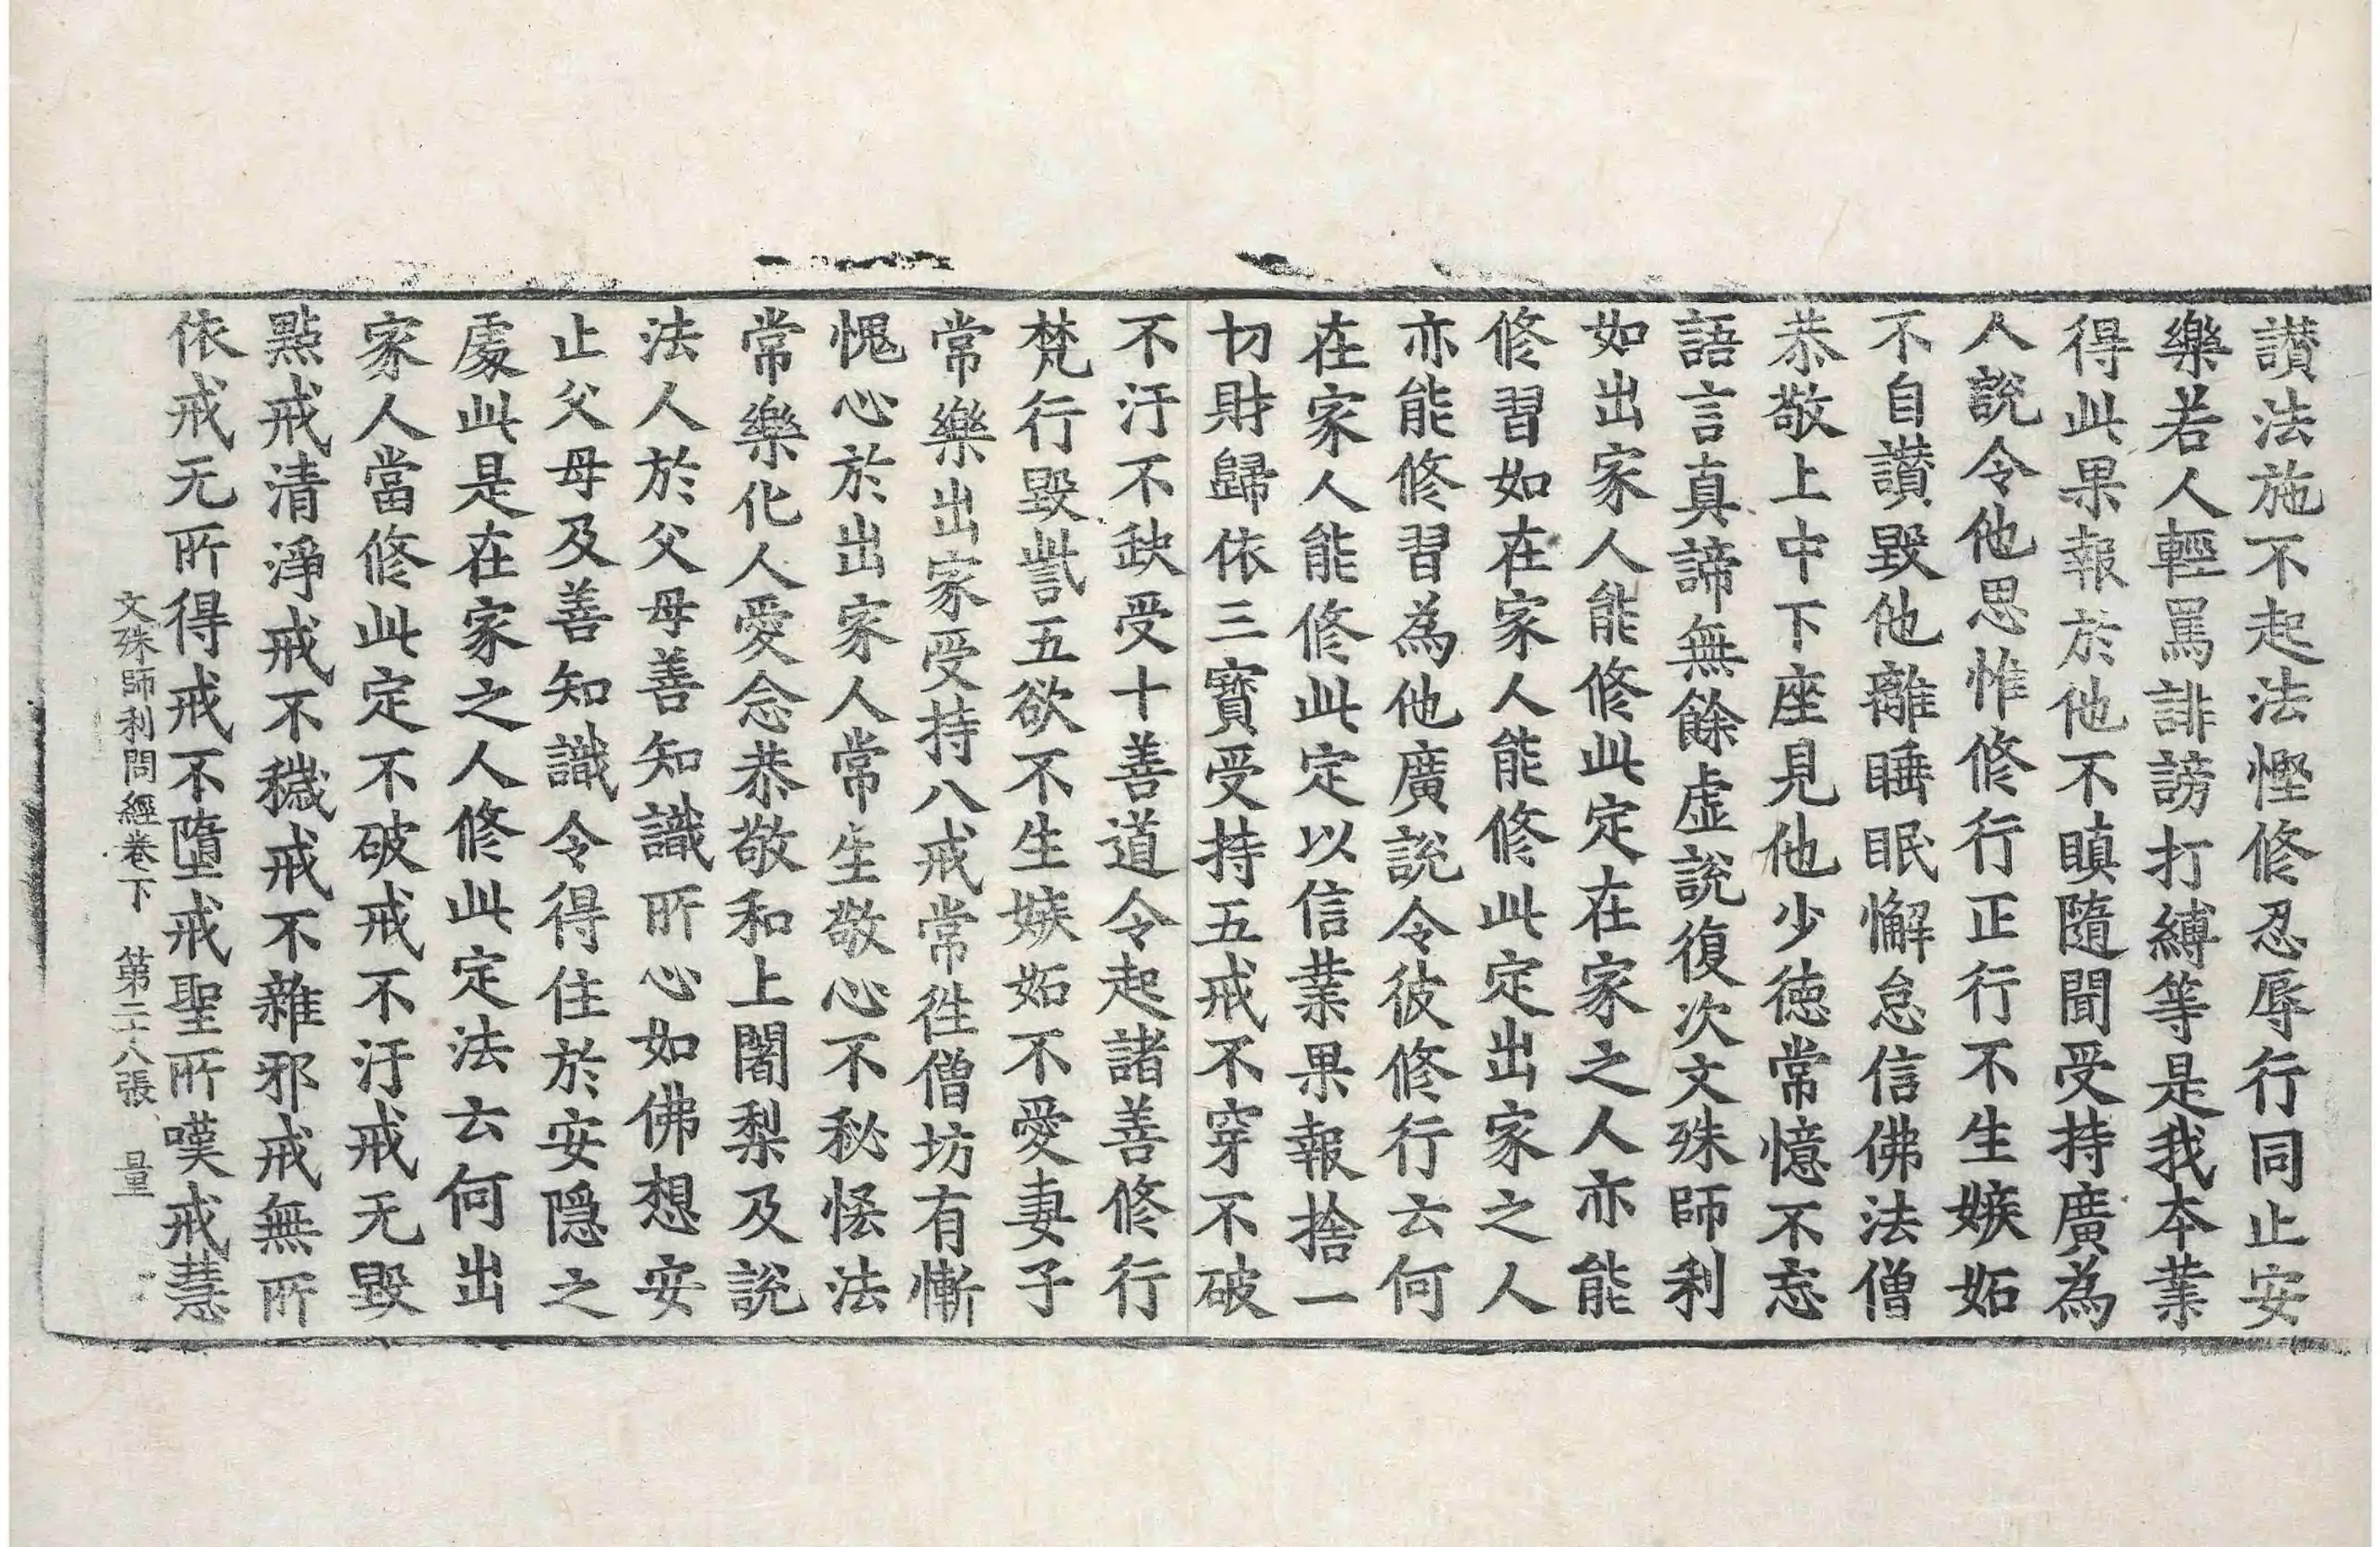 讃法施不起法慳修忍辱行同止安
樂若人輕罵誹謗打縛等是我本業
得此果報於他不瞋隨聞受持廣為
人說令他思惟修行正行不生嫉妬
不自讃毀他離睡眠懈怠信佛法僧
恭敬上中下座見他少德常憶不忘
語言真諦無餘虛說復次文殊師利
如出家人能修此定在家之人亦能
修習如在家人能修此定出家之人
亦能修習為他廣說令彼修行云何
在家人能修此定以信業果報捨一
切財歸依三寶受持五戒不穿不破
不汙不缺受十善道令起諸善修行
梵行毀訾五欲不生嫉妬不愛妻子
常樂出家受持八戒常徃僧坊有慚
愧心於出家人常生敬心不秘恡法
常樂化人愛念恭敬和上闍梨及說
法人於父母善知識所心如佛想安
止父母及善知識令得住於安隱之
處此是在家之人修此定法云何出
家人當修此定不破戒不汙戒无毀
點戒清淨戒不穢戒不雜邪戒無所
依戒无所得戒不墮戒聖所嘆戒慧
文殊師利問經卷下　第二十八張　量